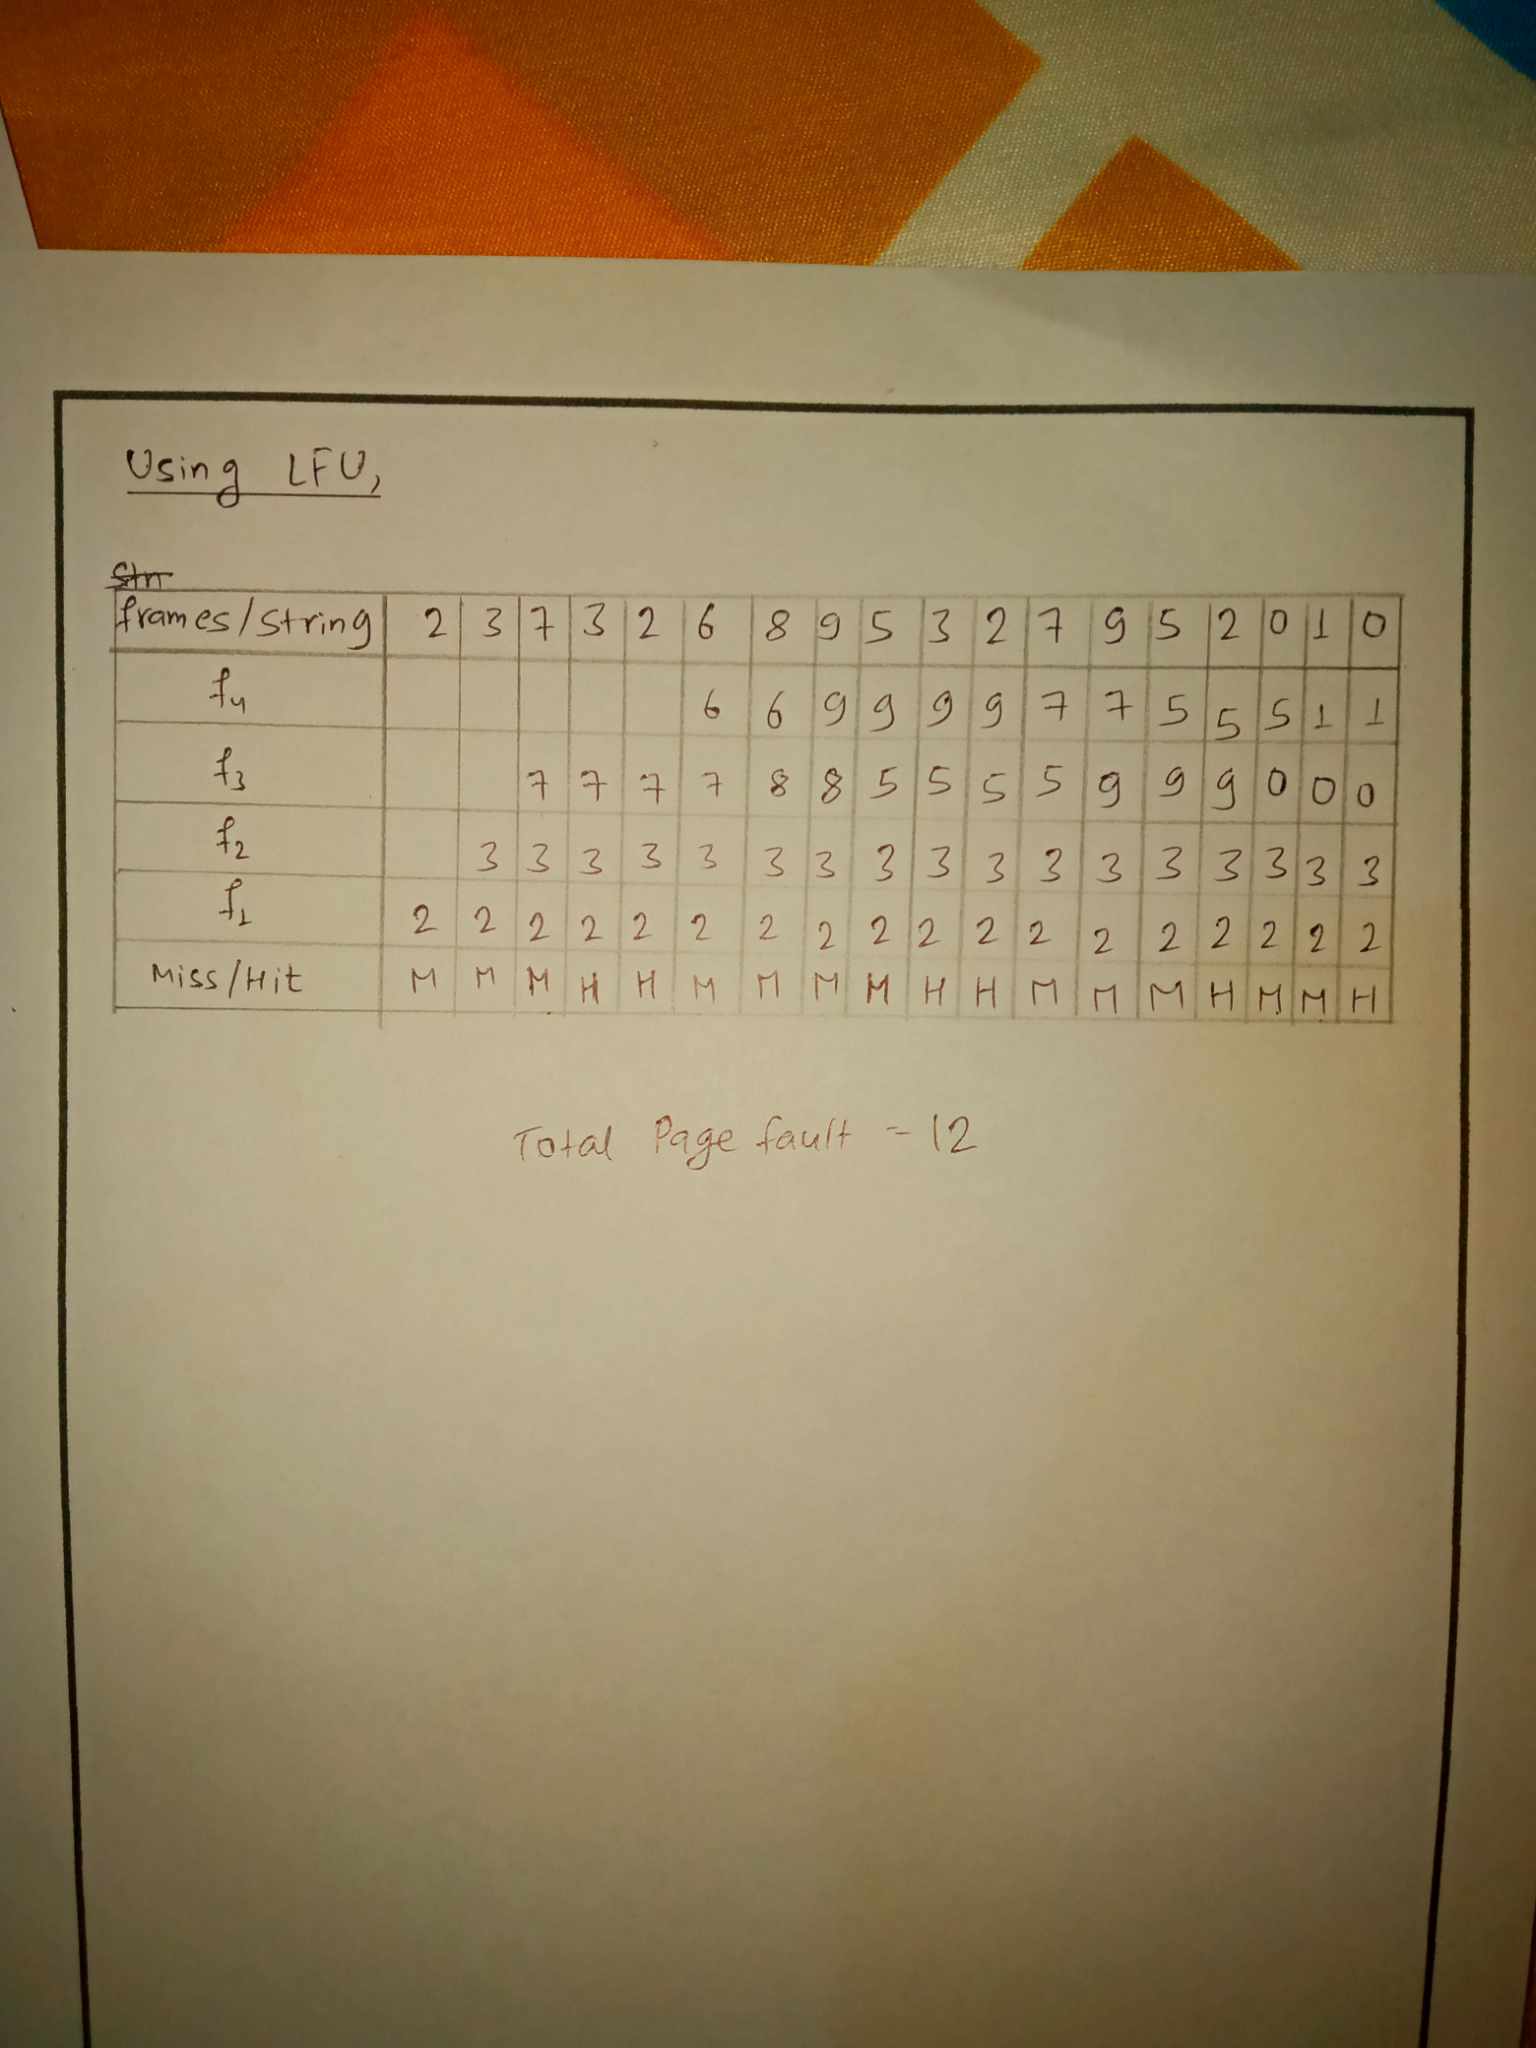 Using LFU,
Str
frames/String 2 3 7 3 2 6 8 9 5 3 2 7 9 5 2 0 1 0
f4 6 6 9 9 9 9 7 7 5 5 5 1 1
f3 7 7 7 7 8 8 5 5 5 5 9 9 9 0 0 0
f2 3 3 3 3 3 3 3 3 3 3 3 3 3 3 3 3 3
f1 2 2 2 2 2 2 2 2 2 2 2 2 2 2 2 2 2 2
Miss/Hit M M M H H M M M M H H M M M H M M H
Total Page fault = 12